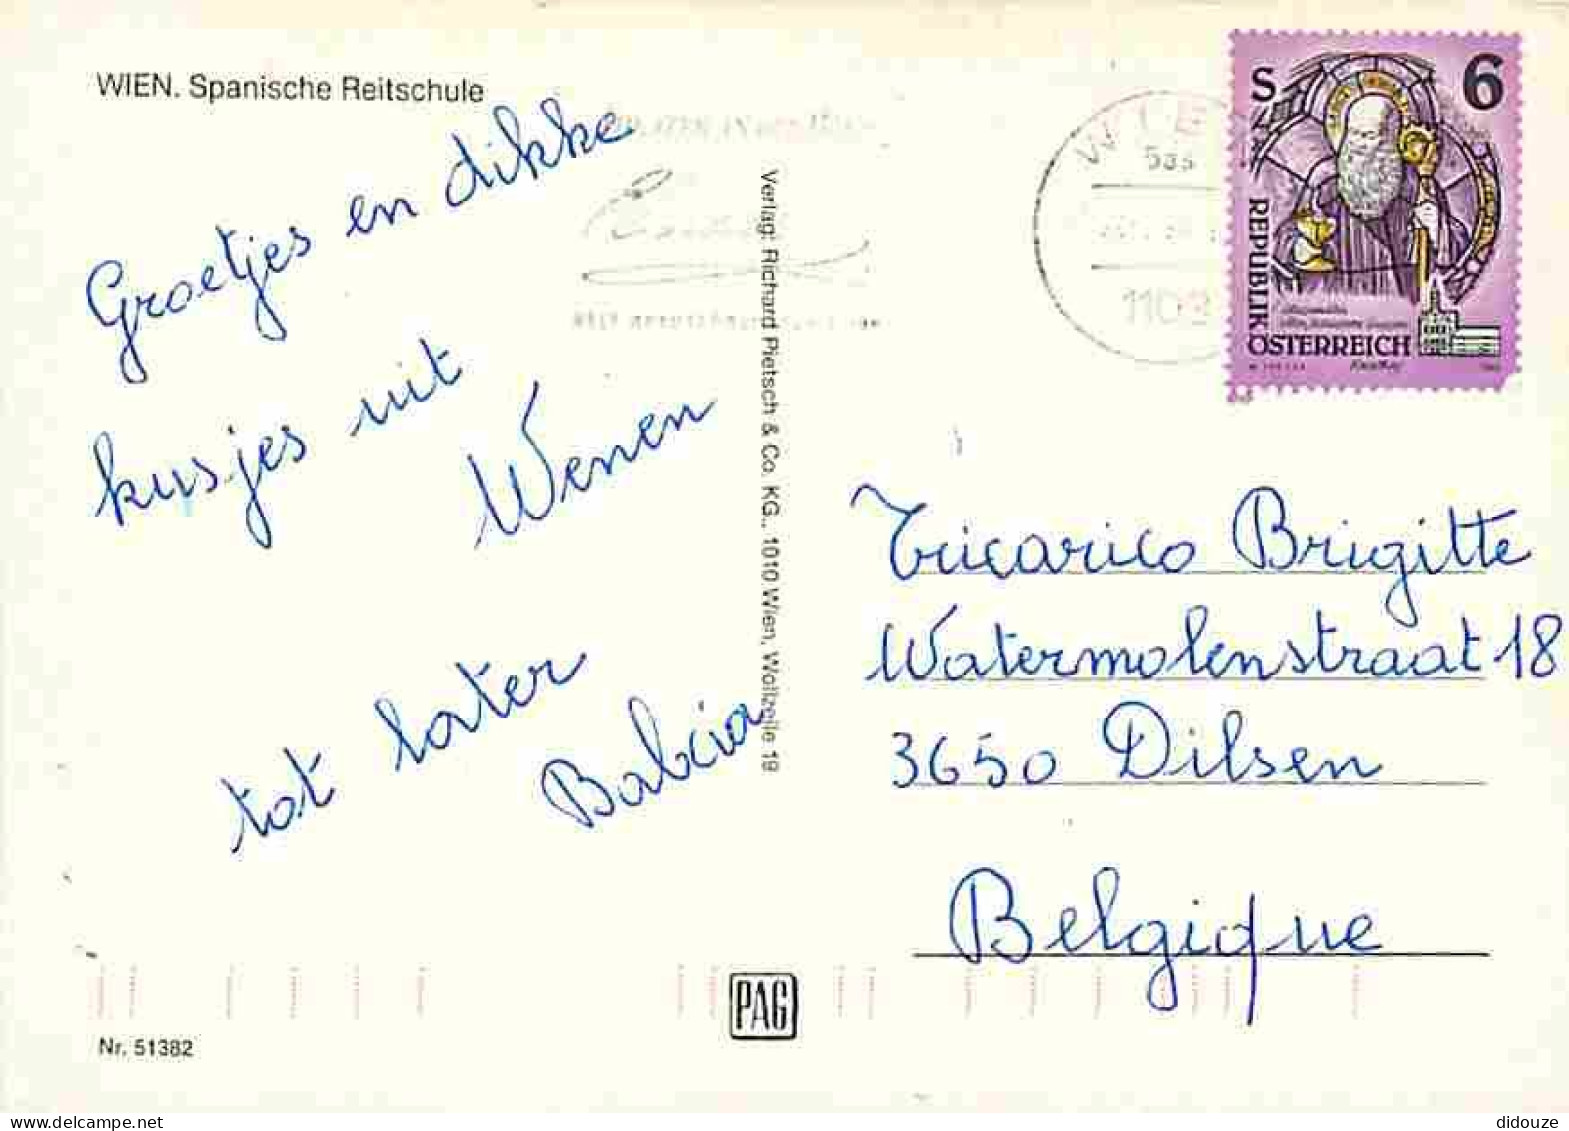 WIEN. Spanische Reitschule
Groetjes en dikke
kusjes uit
Wenen
tot later
Babcia
Verlag: Richard Pietsch & Co. KG., 1010 Wien, Wollzeile 19
S 6
REPUBLIK
ÖSTERREICH
WIE
110
Tricarico Brigitte
Watermolenstraat 18
3650 Dilsen
Belgique
PAG
Nr. 51382
didouze